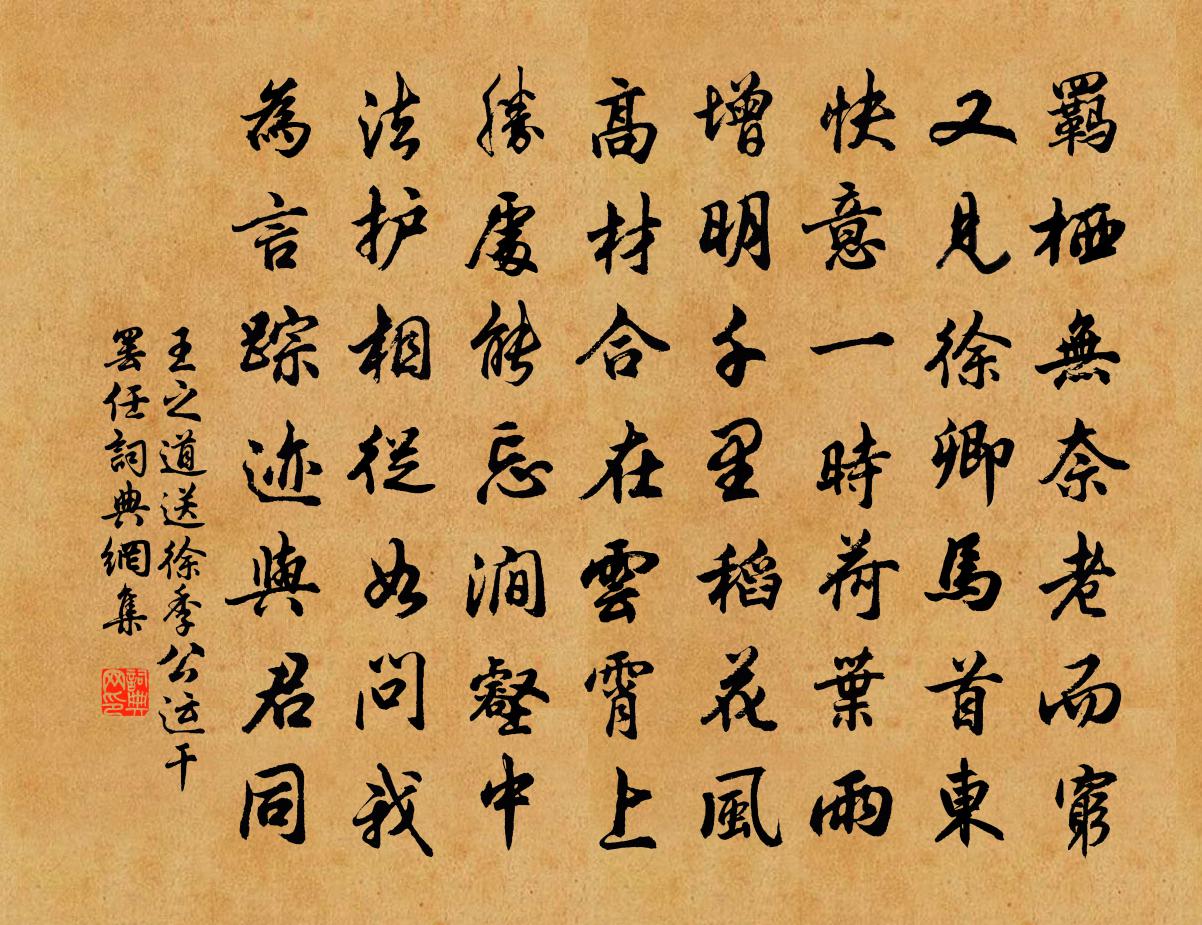 羈栖無奈老而窮
又見徐卿馬首東
快意一時荷葉雨
增明千里稻花風
高材合在雲霄上
勝處能忘澗壑中
法护相從如問我
為言踪迹與君同
王之道送徐季公运干
罢任詞典網集
詞典网印